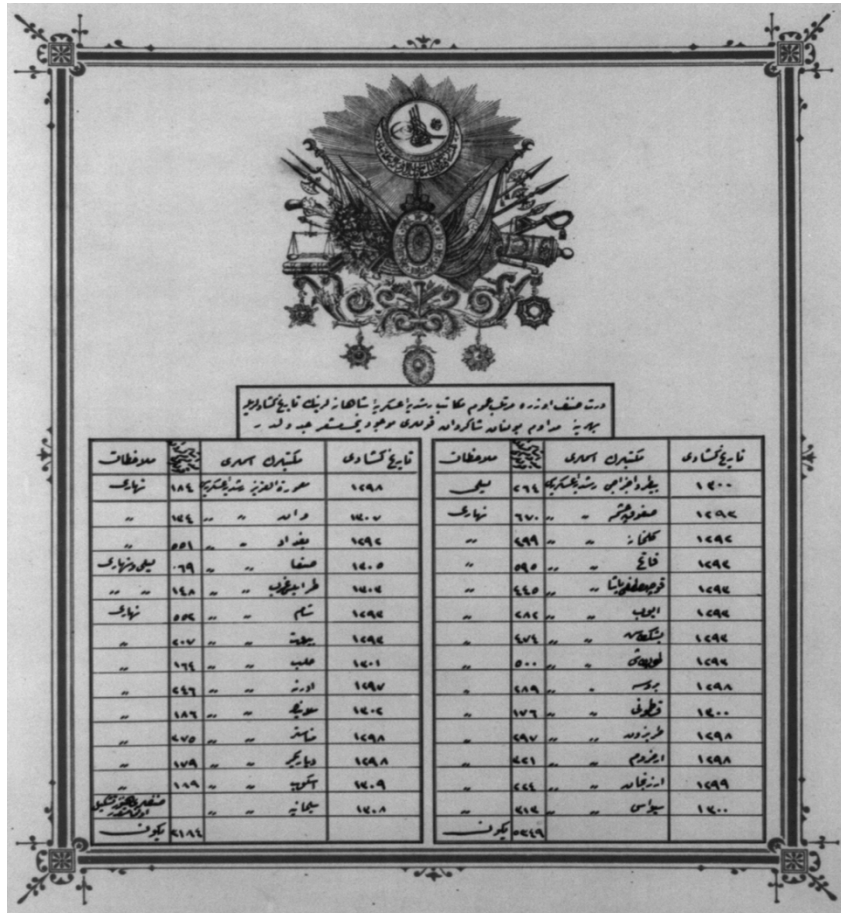 درت صنف اوزره مرتب عموم مكاتب رشديۀ عسكريۀ شاهانه لرينك تاريخ كشادلريله
بهرينه مداوم بولنان شاكردان قوللرى موجودينى مشعر جدولدر
تاريخ كشادى مكتبلرك اسملرى ملاحظات
١٣٠٠ بيطار و اجزاجى رشديۀ عسكريسى ٢٦٤ ليلى
١٢٩٢ صغوق چشمه ״ ״ ٦٧٠ نهارى
١٢٩٢ كلخانه ״ ״ ٤٩٩ ״
١٢٩٢ فاتح ״ ״ ٥٩٥ ״
١٢٩٢ قوجه مصطفى پاشا ״ ״ ٤٤٥ ״
١٢٩٢ ايوب ״ ״ ٢٨٢ ״
١٢٩٢ بشكطاش ״ ״ ٤٧٤ ״
١٢٩٢ طوپ طاشى ״ ״ ٥٠٠ ״
١٢٩٨ بروسه ״ ״ ٢٨٩ ״
١٣٠٠ قسطمونى ״ ״ ١٧٦ ״
١٢٩٨ طربزون ״ ״ ٢٩٧ ״
١٢٩٨ ارضروم ״ ״ ٢٢١ ״
١٢٩٩ ارزنجان ״ ״ ٢٢٤ ״
١٣٠٠ سيواس ״ ״ ٣١٣ ״
٥٢٤٩ يكون
تاريخ كشادى مكتبلرك اسملرى ملاحظات
١٢٩٨ معمورة العزيز رشديۀ عسكريسى ١٨٤ نهارى
١٣٠٧ وان ״ ״ ١٣٤ ״
١٢٩٢ بغداد ״ ״ ٥٥١ ״
١٣٠٥ صنعا ״ ״ ٠٦٩ ليلى و نهارى
١٣٠٢ طرابلس غرب ״ ״ ١٤٨ ״ ״
١٢٩٢ شام ״ ״ ٥٥٢ نهارى
١٢٩٢ بيروت ״ ״ ٢٠٧ ״
١٣٠١ حلب ״ ״ ١٦٤ ״
١٢٩٧ ادرنه ״ ״ ٢٤٦ ״
١٣٠٢ سلانيك ״ ״ ١٨٦ ״
١٢٩٨ مناستر ״ ״ ٢٧٥ ״
١٢٩٨ ديار بكر ״ ״ ١٧٩ ״
١٣٠٩ اسكوب ״ ״ ١٦٩ ״
١٣٠٨ سليمانيه ״ ״
٣١٨٤ يكون